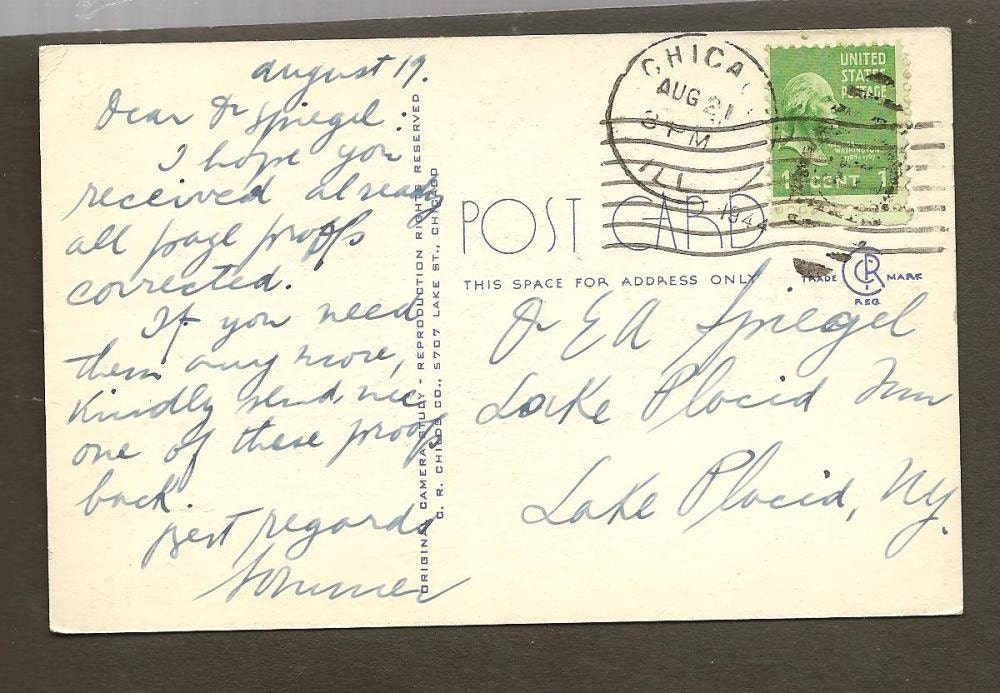 August 19.
Dear Dr Spiegel:
I hope you
received already
all page proofs
corrected.
If you need
them any more,
Kindly send me
one of these proofs
back.
Best regards
Sommer
ORIGINAL CAMERA STUDY - REPRODUCTION RIGHTS RESERVED
C. R. CHILDS CO., 5707 LAKE ST., CHICAGO
CHICA
AUG 21
3 PM
ILL
194
UNITED
STATES
POSTAGE
WASHINGTON
1 CENT 1
POST CARD
THIS SPACE FOR ADDRESS ONLY
TRADE CR MARK
REG
Dr E A Spiegel
Lake Placid Inn
Lake Placid, Ny.